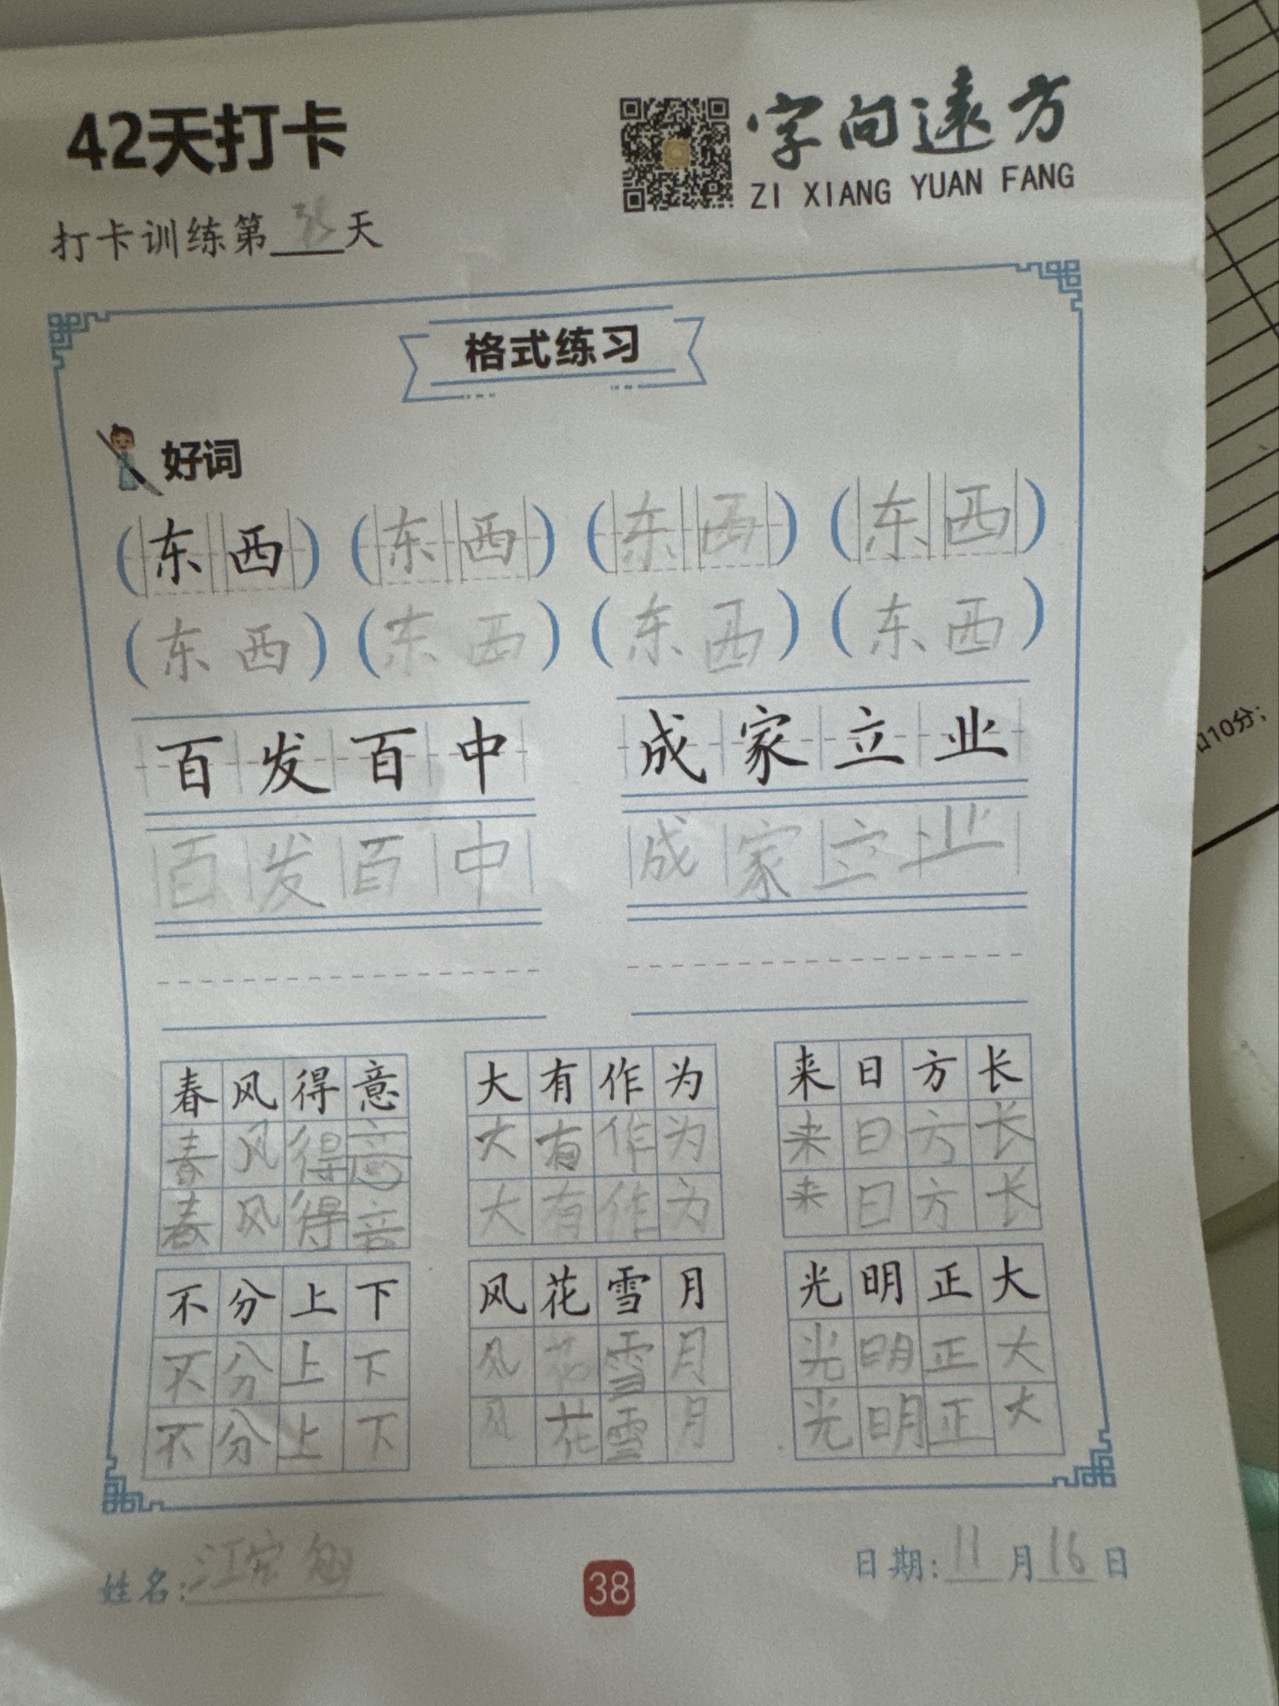 42天打卡
字向远方
ZI XIANG YUAN FANG
打卡训练第 天
格式练习
好词
(东西) (东西) (东西) (东西)
(东西) (东西) (东西) (东西)
百发百中 成家立业
百发百中 成家立业
春风得意 大有作为 来日方长
春风得意 大有作为 来日方长
春风得意 大有作为 来日方长
不分上下 风花雪月 光明正大
不分上下 风花雪月 光明正大
不分上下 风花雪月 光明正大
姓名:江
38
日期:11月16日
口10分;